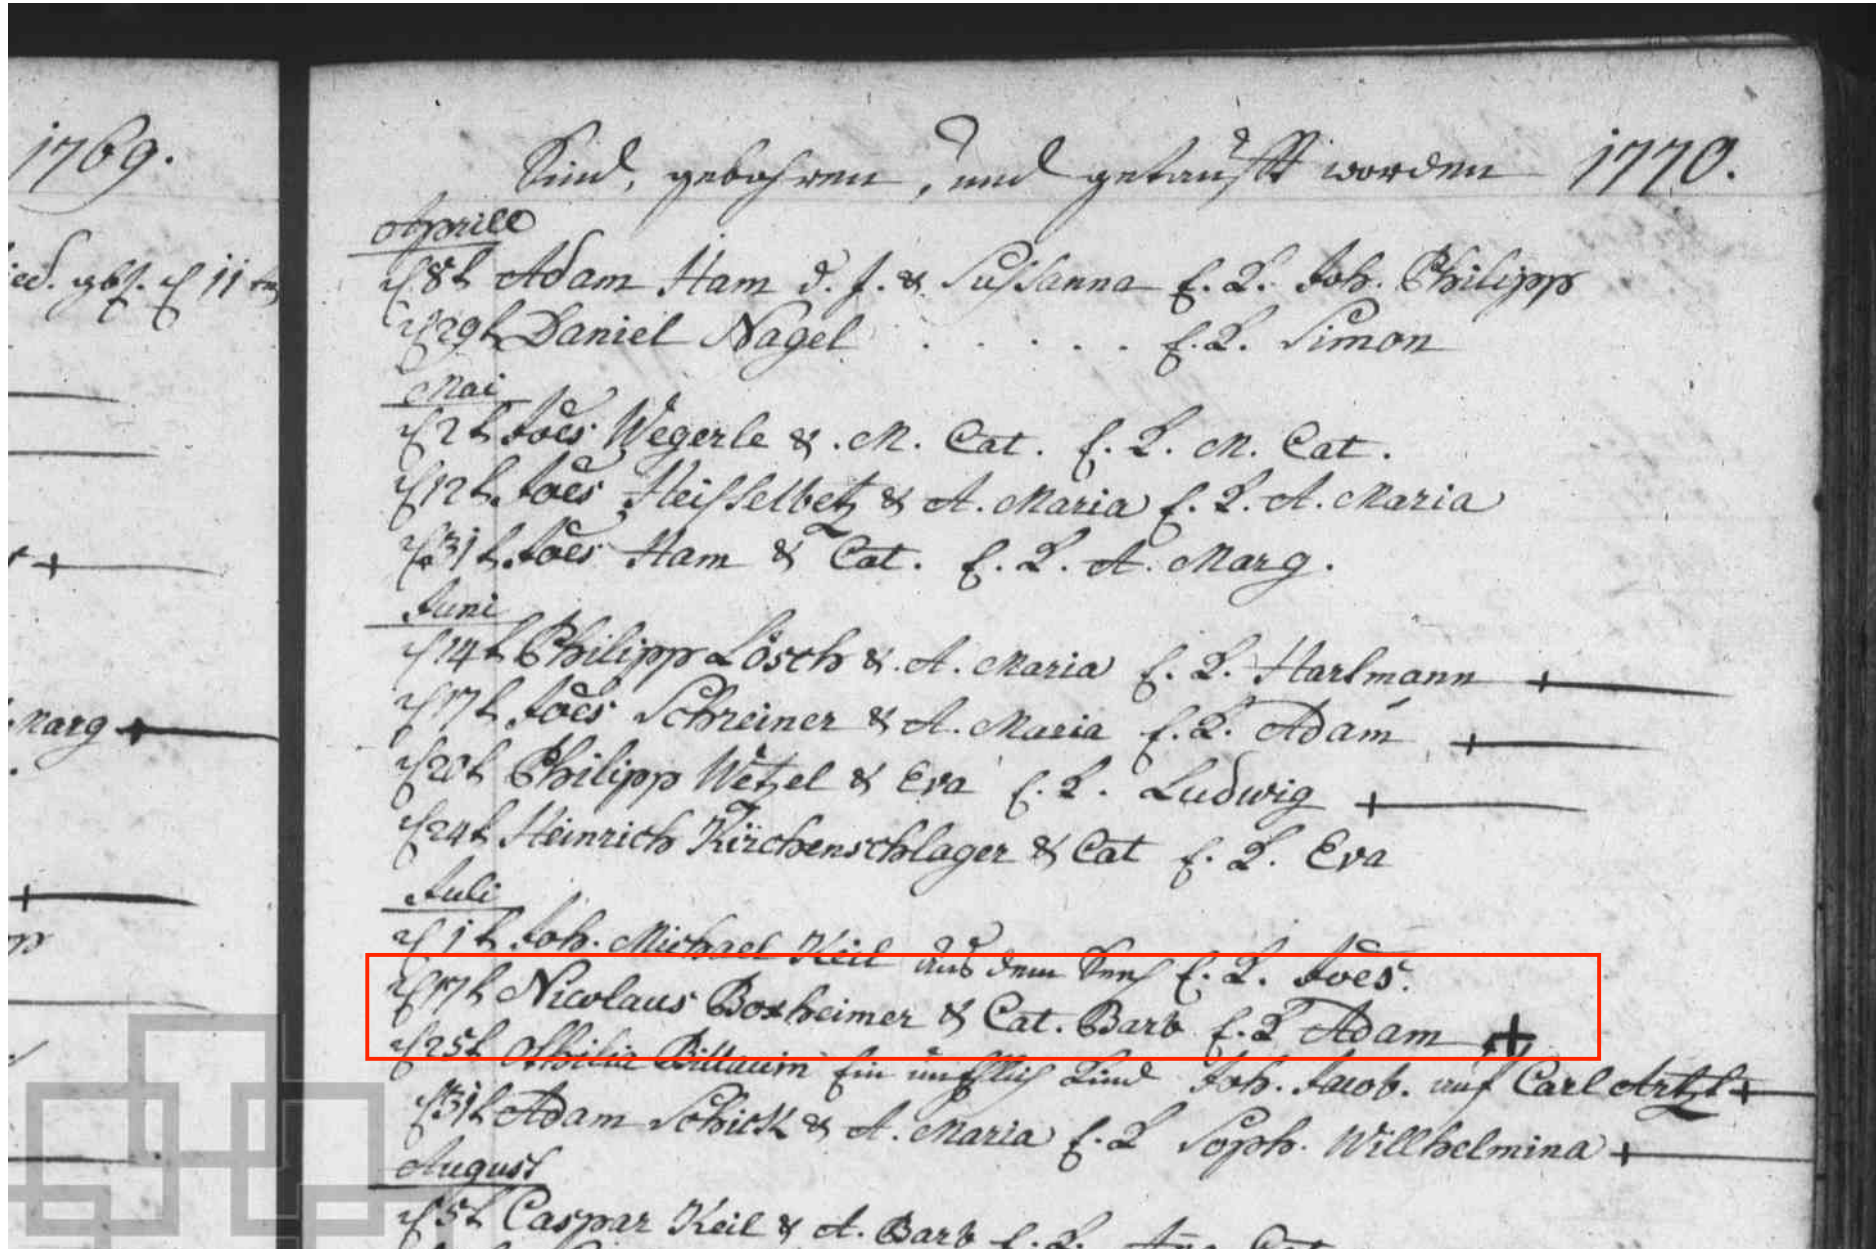 1769.
Kind, gebohren, und getaufft worden 1770.
Aprill
d 8t Adam Ham d. J. & Sussanna E. K. Joh. Philipp
ied. gbh. d 11
d 29t Daniel Nagel . . . . . E. K. Simon
Mai
d 2t Joes Wegerle & M. Cat. E. K. M. Cat.
d 12t Joes Heisselbetz & A. Maria E. K. A. Maria
d 31t Joes Ham & Cat. E. K. A. Marg.
Juni
d 14t Philipp Lösch & A. Maria E. K. Hartmann +
d 17t Joes Schreiner & A. Maria E. K. Adam +
Marg +
d 20t Philipp Wetzel & Eva E. K. Ludwig +
d 24t Heinrich Kirchenschlager & Cat E. K. Eva
Juli
d 1t Joh. Michael Keil aus dem E. K. Joes.
d 17t Nicolaus Boxheimer & Cat. Barb E. K Adam +
d 25t Othilia Ein unehlich Kind Joh. Jacob. auf Carl Artzt +
d 31t Adam Schick & A. Maria E. K Soph. Willhelmina +
August
d 5t Caspar Keil & A. Barb E. K. Cat